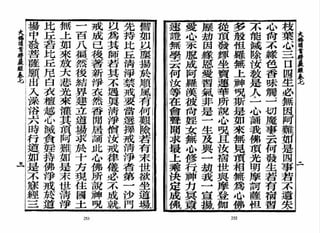 大佛頂首楞嚴經卷七
二
枝葉心三口四生必無因阿難如是四事若不遺失
心尚不緣色香味觸一切魔事云何發生若有宿習
不能滅除汝教是人一心誦我佛頂光明摩訶薩怛
多般怛囉無上神呪斯是如來無見頂相無為心佛
從頂發輝坐寶蓮華所說心呪且汝宿世與摩登伽
歷劫因緣恩愛習氣非是一生及與一劫我一宣揚
愛心永脫成阿羅漢彼尚婬女無心修行神力冥資
速證無學云何汝等在會聲聞求最上乘決定成佛
譬如以塵揚於順風有何艱險若有末世欲坐道場
先持比丘清淨禁戒要當選擇戒清淨者第一沙門
以為其師若其不遇真清淨僧汝戒律儀必不成就
戒成已後著新淨衣然香閒居誦此心佛所說神呪
一百八徧然後結界建立道場求於十方現住國土
無上如來放大悲光來灌其頂阿難如是末世清淨
比丘若比丘尼白衣檀越心滅貪婬持佛淨戒於道
場中發菩薩願出入澡浴六時行道如是不寐經三
大佛頂首楞嚴經卷七
三